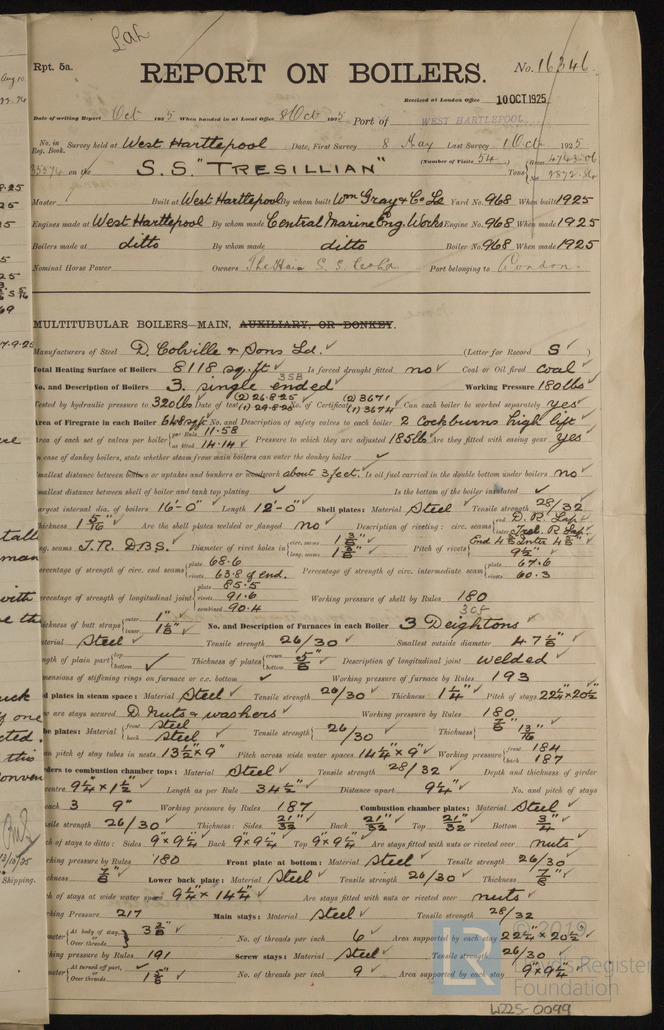 Lah
Rpt. 5a.
REPORT ON BOILERS.
No. 16346.
Received at London Office 10 OCT 1925
Date of writing Report Oct 1925 When handed in at Local Office 8 Oct 1925 Port of WEST HARTLEPOOL
No. in Reg. Book. Survey held at West Hartlepool Date, First Survey 8 May Last Survey 1 Oct 1925
on the S.S. "TRESILLIAN" (Number of Visits 54) Tons
Master Built at West Hartlepool By whom built Wm Gray & Co Ld Yard No. 968 When built 1925
Engines made at West Hartlepool By whom made Central Marine Eng. Works Engine No. 968 When made 1925
Boilers made at ditto By whom made ditto Boiler No. 968 When made 1925
Nominal Horse Power Owners The Hain S. S. Co Ld. Port belonging to London.
MULTITUBULAR BOILERS—MAIN, AUXILIARY, OR DONKEY.
Manufacturers of Steel D. Colville & Sons Ld. (Letter for Record S)
Total Heating Surface of Boilers 8118 sq. ft Is forced draught fitted no Coal or Oil fired coal
3SB
No. and Description of Boilers 3. single ended Working Pressure 180 lbs
Tested by hydraulic pressure to 320 lbs Date of test (2) 26.8.25 (1) 29.8.25 No. of Certificate (2) 3671 (1) 3674 Can each boiler be worked separately yes
Area of Firegrate in each Boiler No. and Description of safety valves to each boiler 2 Cockburns high lift
Area of each set of valves per boiler per Rule 11.58 as fitted 14.14 Pressure to which they are adjusted 185 lb Are they fitted with easing gear yes
In case of donkey boilers, state whether steam from main boilers can enter the donkey boiler
Smallest distance between boilers or uptakes and bunkers or woodwork about 3 feet. Is oil fuel carried in the double bottom under boilers no
Smallest distance between shell of boiler and tank top plating Is the bottom of the boiler insulated
Largest internal dia. of boilers 16'-0" Length 12'-0" Shell plates: Material Steel Tensile strength 28/32
Thickness 1 5/16" Are the shell plates welded or flanged no Description of riveting: circ. seams end D. R. Lap. inter. Treb. R Lap.
long. seams T.R. D.B.S. Diameter of rivet holes in circ. seams long. seams Pitch of rivets 9 1/2"
percentage of strength of circ. end seams plate 68.6 rivets 63.8 of end. Percentage of strength of circ. intermediate seam plate 67.6 rivets 60.3
percentage of strength of longitudinal joint plate 85.5 rivets 91.6 combined 90.4 Working pressure of shell by Rules 180
3cf
Thickness of butt straps outer 1" inner 1 1/8" No. and Description of Furnaces in each Boiler 3 Deightons
Material Steel Tensile strength 26/30 Smallest outside diameter 47 1/8"
Length of plain part top bottom Thickness of plates crown bottom 5/8" Description of longitudinal joint welded
Dimensions of stiffening rings on furnace or c.c. bottom Working pressure of furnace by Rules 193
End plates in steam space: Material Steel Tensile strength 26/30 Thickness 1 1/4" Pitch of stays 22 1/4" x 20 1/2"
How are stays secured D. nuts & washers Working pressure by Rules 180
Tube plates: Material front Steel back Steel Tensile strength 26/30 Thickness 7/8" 13/16"
Mean pitch of stay tubes in nests 13 1/2" x 9" Pitch across wide water spaces 14 1/4" x 9" Working pressure front 184 back 187
Girders to combustion chamber tops: Material Steel Tensile strength 28/32 Depth and thickness of girder
centre 9 1/4" x 1 1/2" Length as per Rule 34 1/2" Distance apart 9 1/4" No. and pitch of stays
each 3 9" Working pressure by Rules 187 Combustion chamber plates: Material Steel
Tensile strength 26/30 Thickness: Sides 21/32" Back 21/32" Top 21/32" Bottom 3/4"
Pitch of stays to ditto: Sides 9" x 9 1/4" Back 9" x 9 1/4" Top 9" x 9 1/4" Are stays fitted with nuts or riveted over nuts
Working pressure by Rules 180 Front plate at bottom: Material Steel Tensile strength 26/30
Thickness 7/8" Lower back plate: Material Steel Tensile strength 26/30 Thickness 7/8"
Pitch of stays at wide water space 9 1/4" x 14 1/4" Are stays fitted with nuts or riveted over nuts
Working Pressure 217 Main stays: Material Steel Tensile strength 28/32
Diameter At body of stay, or Over threads No. of threads per inch 6 Area supported by each stay 22 1/4" x 20 1/2"
Working pressure by Rules 191 Screw stays: Material Steel Tensile strength 26/30
Diameter At turned off part, or Over threads 1 5/8" No. of threads per inch 9 Area supported by each stay 9" x 9 1/4"
© 2019
Lloyd's Register
Foundation
W225-0099